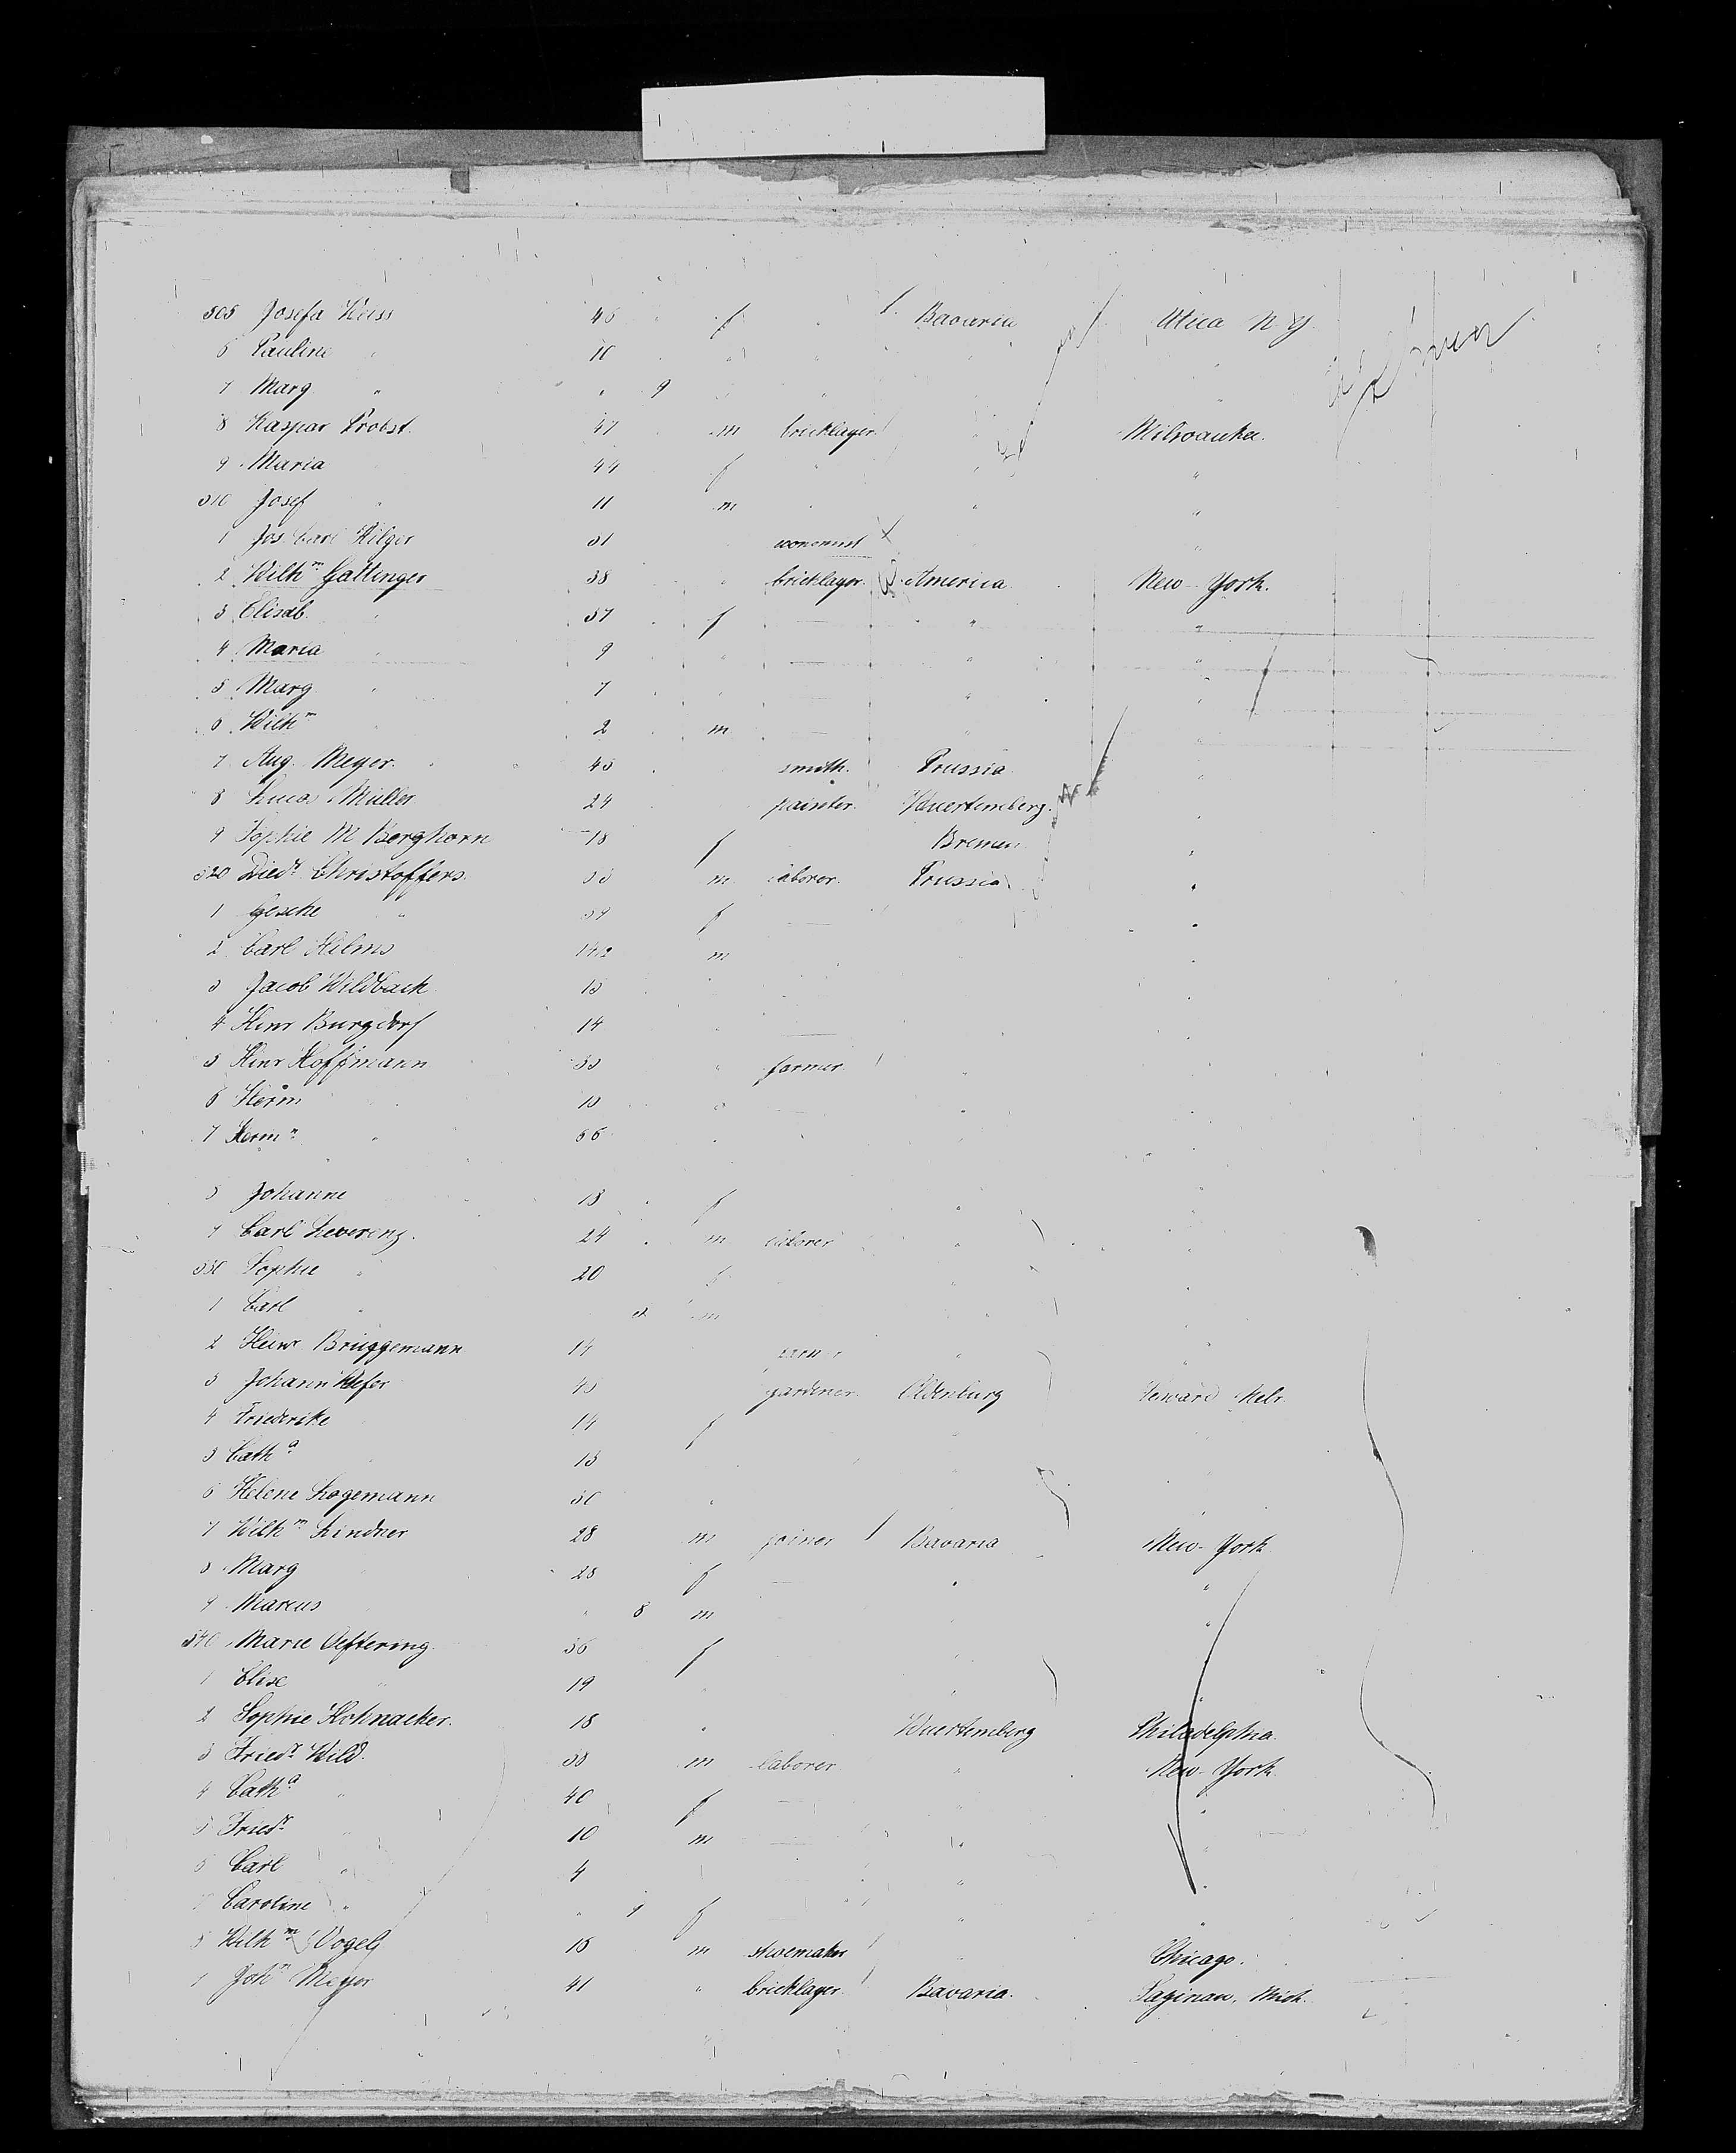 505 Josefa Heiss 46 f Bavaria Utica N Y.
6 Pauline " 10 " "
7 Marg " " 9 "
8 Kaspar Probst. 47 m bricklayer Milwaukee.
9 Maria 44 f " "
510 Josef " 11 m " "
1 Jos. Carl Hilger 31 "
2 Wilhm Gattinger 38 " bricklayer America New-York.
3 Elisab. " 37 f — " "
4 Maria " 9 " — " "
5 Marg " 7 " — " "
6 Wilhm 2 m — " "
7 Aug. Meyer. 45 smith. Prussia "
8 Lucas Müller 24 painter. Wuertemberg. "
9 Sophie M Berghorn 18 f Bremen "
520 Diedr Christoffers. m laborer. Prussia "
1 Gesche " f — "
2 Carl Helms m "
3 Jacob Wildback "
4 Heinr Burgdorf 14 — "
5 Heinr Hoffmann " farmer " "
6 Herm " " "
7 Hermn " 66 "
8 Johanne 18 f " "
9 Carl Leverenz. 24 m laborer " "
530 Sophie " 20 f " "
1 Carl " m " "
2 Heinr Brüggemann 14 " "
3 Johann Kefer 45 gardener. Oldenburg Seward Nebr.
4 Friederike 14 f
5 Catha "
6 Helene Logemann 30 " "
7 Wilhm Lindner 28 m joiner Bavaria New-York
8 Marg 28 f — " "
9 Marcus " 8 m "
540 Marie Oeftering. 36 f "
1 Elise " 19 " " "
2 Sophie Hohnacker. 18 " Wuertemberg Philadelphia.
3 Friedr Wild. 38 m laborer " New-York.
4 Catha " 40 f — " "
5 Friedr " 10 m — " "
6 Carl " 4 " "
7 Caroline " " f — " "
8 Wilhm Vogel m shoemaker " Chicago.
9 John Meyer 41 " bricklayer Bavaria. Saginaw, Mich.